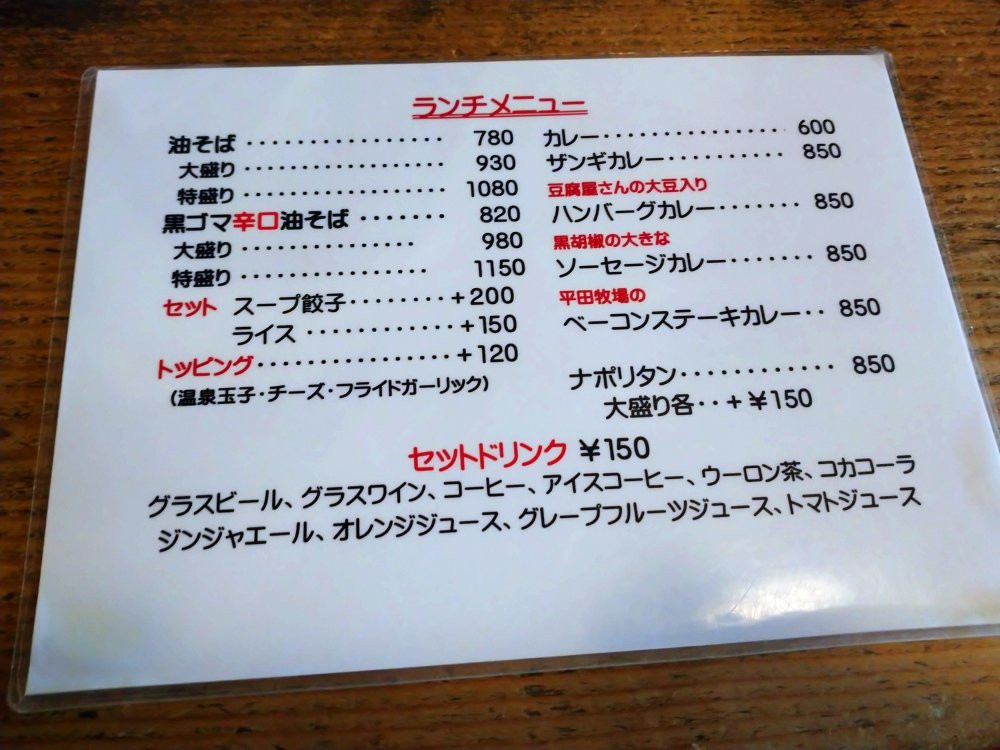 ランチメニュー
油そば ・・・・・・・・・・・・・・・・・ 780
大盛り ・・・・・・・・・・・・・・・・・ 930
特盛り ・・・・・・・・・・・・・・・・・ 1080
黒ゴマ辛口油そば ・・・・・・・ 820
大盛り ・・・・・・・・・・・・・・ 980
特盛り ・・・・・・・・・・・・・・・ 1150
セット スープ餃子・・・・・・・・+200
ライス ・・・・・・・・・・・・+150
トッピング・・・・・・・・・・・・・・・・+120
(温泉玉子・チーズ・フライドガーリック)
カレー・・・・・・・・・・・・・・・・ 600
ザンギカレー・・・・・・・・・・ 850
豆腐屋さんの大豆入り
ハンバーグカレー・・・・・・・ 850
黒胡椒の大きな
ソーセージカレー・・・・・・・ 850
平田牧場の
ベーコンステーキカレー・・ 850
ナポリタン・・・・・・・・・・・・ 850
大盛り各・・+¥150
セットドリンク ¥150
グラスビール、グラスワイン、コーヒー、アイスコーヒー、ウーロン茶、コカコーラ
ジンジャエール、オレンジジュース、グレープフルーツジュース、トマトジュース